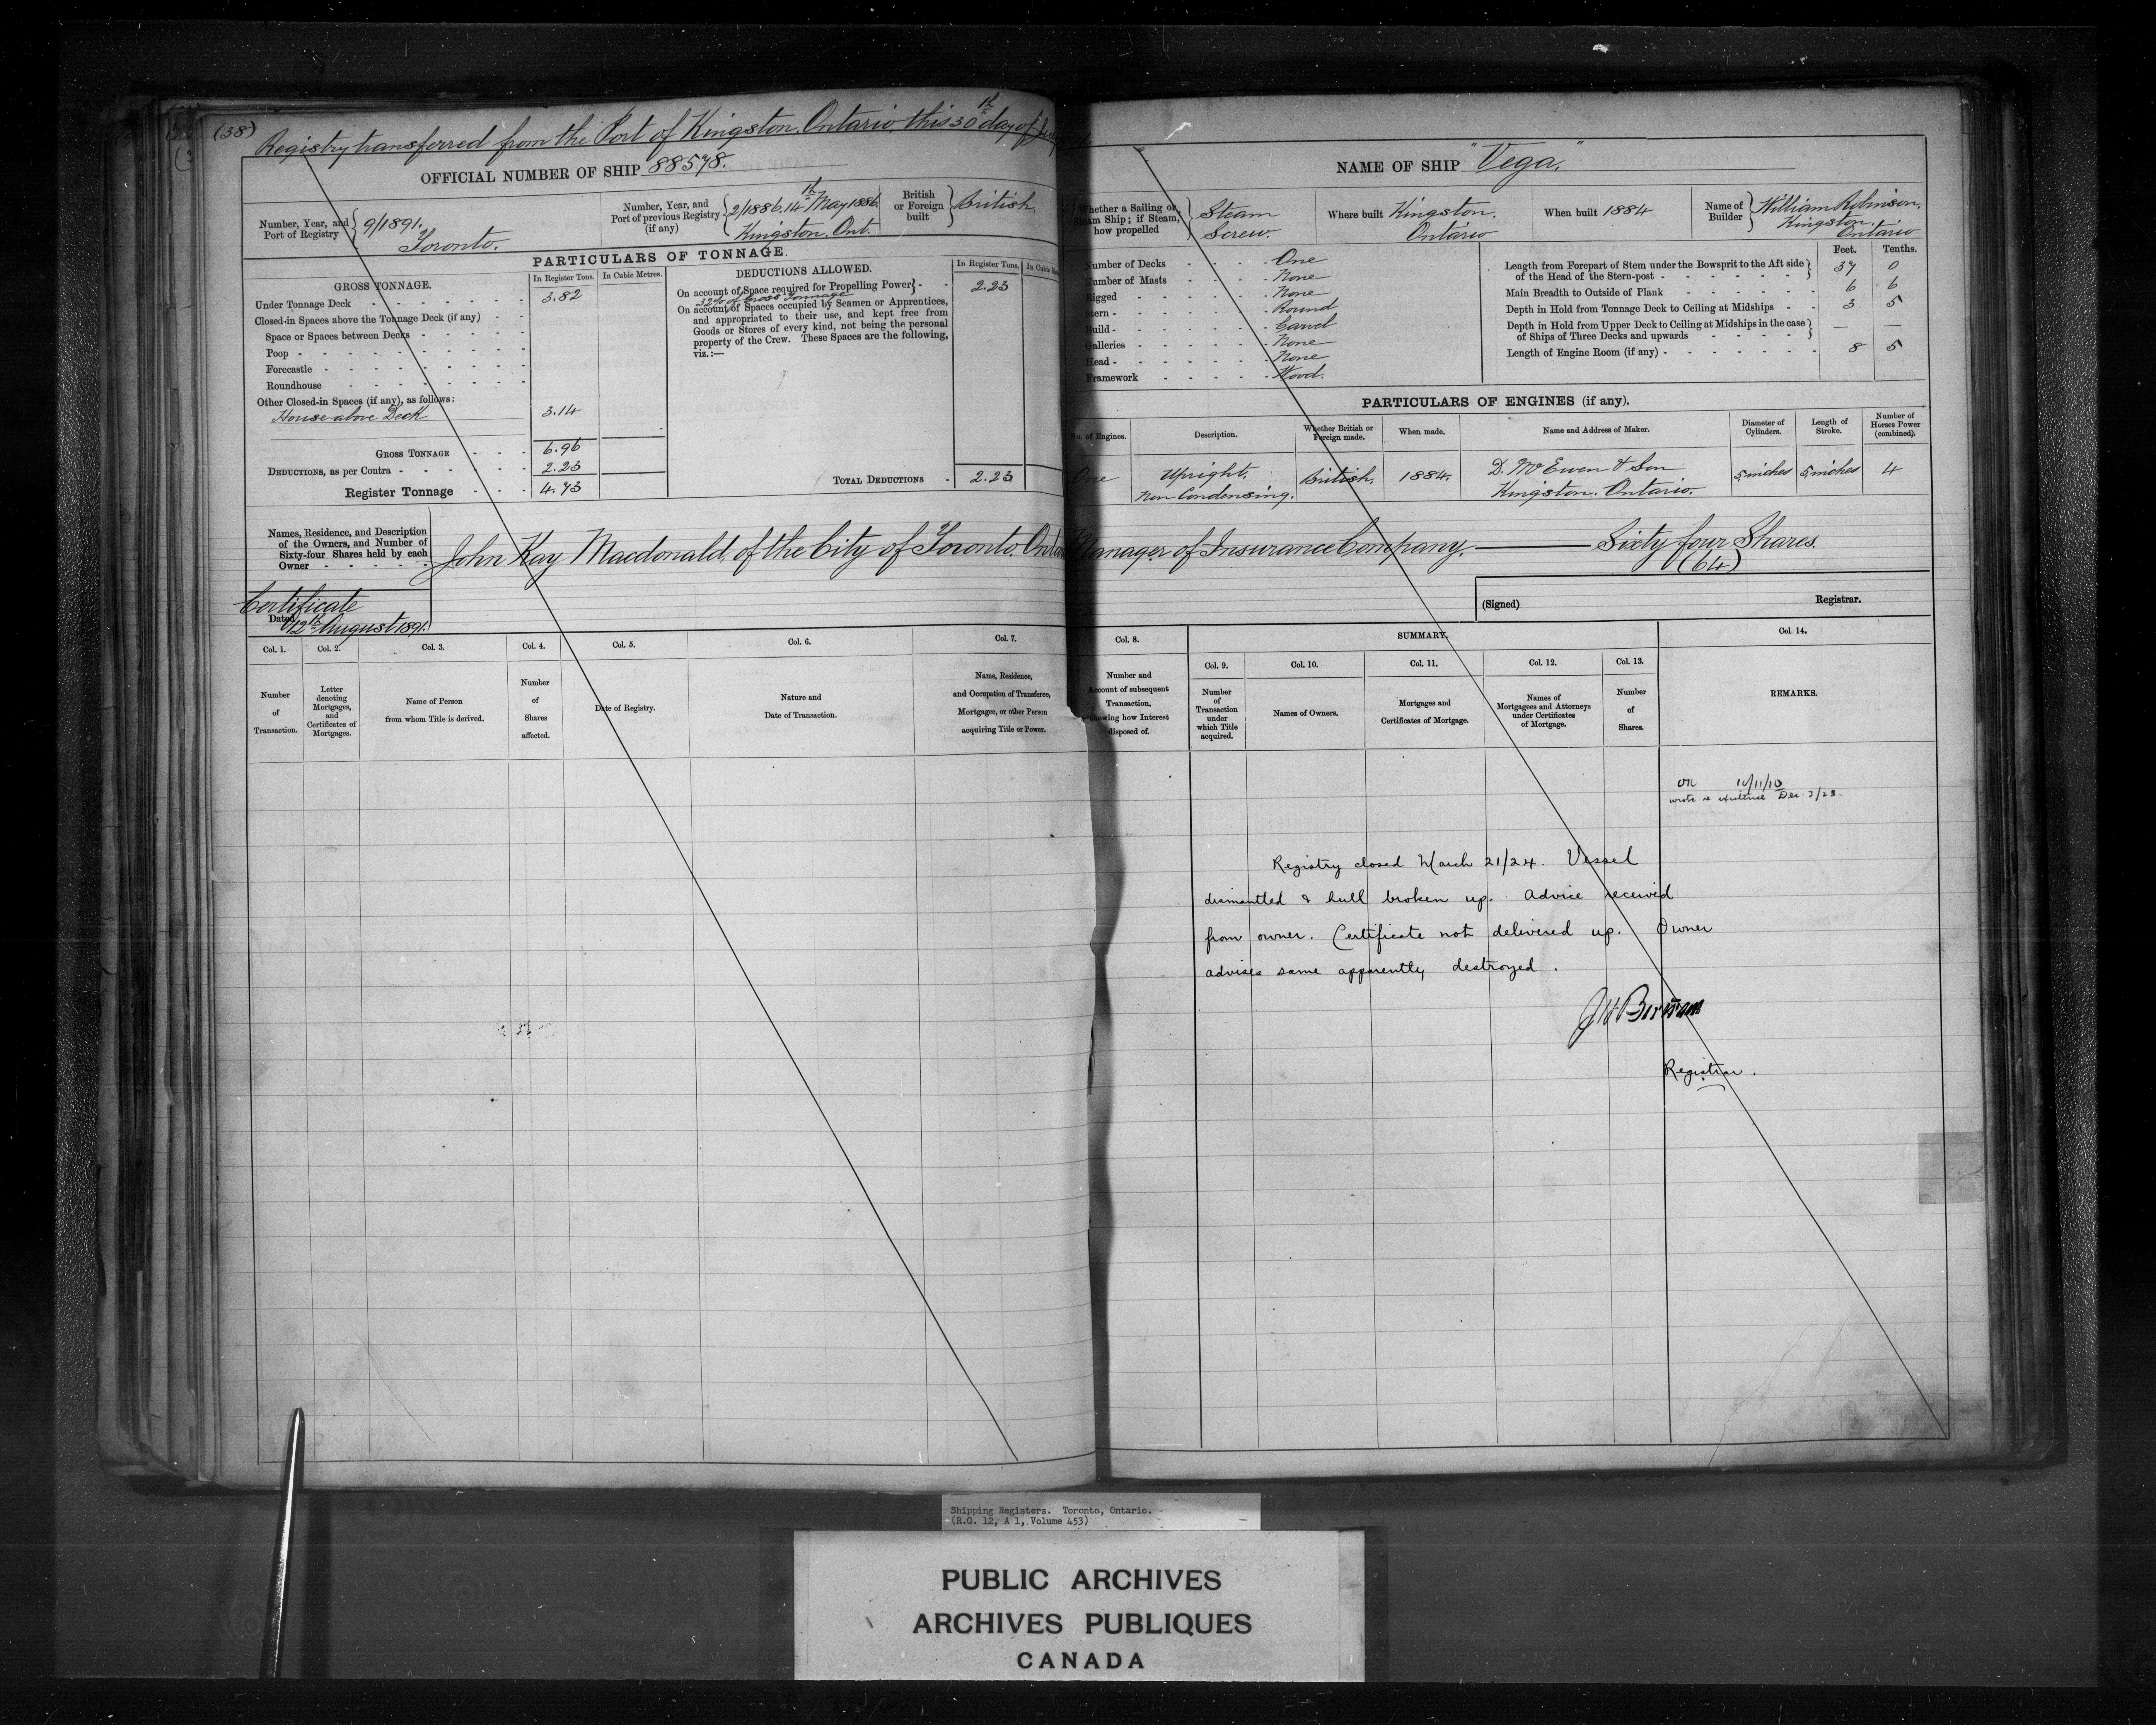 (38)
Registry transferred from the Port of Kingston, Ontario, this 30th day of July
OFFICIAL NUMBER OF SHIP 88578.
Number, Year, and Port of Registry } 9/1891. Toronto.
Number, Year, and Port of previous Registry (if any) { 2/1886. 14th May 1886. Kingston, Ont.
British or Foreign built } British.
PARTICULARS OF TONNAGE.
GROSS TONNAGE.
In Register Tons.
In Cubic Metres.
Under Tonnage Deck 3.82
Closed-in Spaces above the Tonnage Deck (if any)
Space or Spaces between Decks
Poop
Forecastle
Roundhouse
Other Closed-in Spaces (if any), as follows:
House above Deck 3.14
GROSS TONNAGE 6.96
DEDUCTIONS, as per Contra 2.23
Register Tonnage 4.73
DEDUCTIONS ALLOWED.
In Register Tons.
In Cubic
On account of Space required for Propelling Power } 2.23
32% of Gross Tonnage
On account of Spaces occupied by Seamen or Apprentices,
and appropriated to their use, and kept free from
Goods or Stores of every kind, not being the personal
property of the Crew. These Spaces are the following,
viz.:—
TOTAL DEDUCTIONS 2.23
NAME OF SHIP "Vega."
Whether a Sailing or Steam Ship; if Steam, how propelled } Steam Screw.
Where built Kingston, Ontario
When built 1884
Name of Builder } William Robinson, Kingston, Ontario
Number of Decks One
Number of Masts None
Rigged None
Stern Round
Build Carvel
Galleries None
Head None
Framework Wood.
Feet. Tenths.
Length from Forepart of Stem under the Bowsprit to the Aft side of the Head of the Stern-post 37 0
Main Breadth to Outside of Plank 6 6
Depth in Hold from Tonnage Deck to Ceiling at Midships 3 5
Depth in Hold from Upper Deck to Ceiling at Midships in the case of Ships of Three Decks and upwards — —
Length of Engine Room (if any) 8 5
PARTICULARS OF ENGINES (if any).
No. of Engines. Description. Whether British or Foreign made. When made. Name and Address of Maker. Diameter of Cylinders. Length of Stroke. Number of Horses Power (combined).
One Upright. Non Condensing. British. 1884. D. McEwen & Son Kingston. Ontario. 5 inches 5 inches 4
Names, Residence, and Description
of the Owners, and Number of
Sixty-four Shares held by each
Owner
John Kay Macdonald, of the City of Toronto, Ontar Manager of Insurance Company. — Sixty four Shares.
(64)
Certificate
Dated 12th August 1891.
(Signed) Registrar.
Col. 1. Col. 2. Col. 3. Col. 4. Col. 5. Col. 6. Col. 7. Col. 8.
SUMMARY.
Col. 9. Col. 10. Col. 11. Col. 12. Col. 13. Col. 14.
Number of Transaction.
Letter denoting Mortgages, and Certificates of Mortgages.
Name of Person from whom Title is derived.
Number of Shares affected.
Date of Registry.
Nature and Date of Transaction.
Name, Residence, and Occupation of Transferee, Mortgagee, or other Person acquiring Title or Power.
Number and Account of subsequent Transaction, showing how Interest disposed of.
Number of Transaction under which Title acquired.
Names of Owners.
Mortgages and Certificates of Mortgage.
Names of Mortgagees and Attorneys under Certificates of Mortgage.
Number of Shares.
REMARKS.
wrote re existence Dec. 3/23.
Registry closed March 21/24. Vessel
dismantled & hull broken up. Advice received
from owner. Certificate not delivered up. Owner
advises same apparently destroyed.
Registrar.
Shipping Registers. Toronto, Ontario.
(R.G. 12, A 1, Volume 453)
PUBLIC ARCHIVES
ARCHIVES PUBLIQUES
CANADA